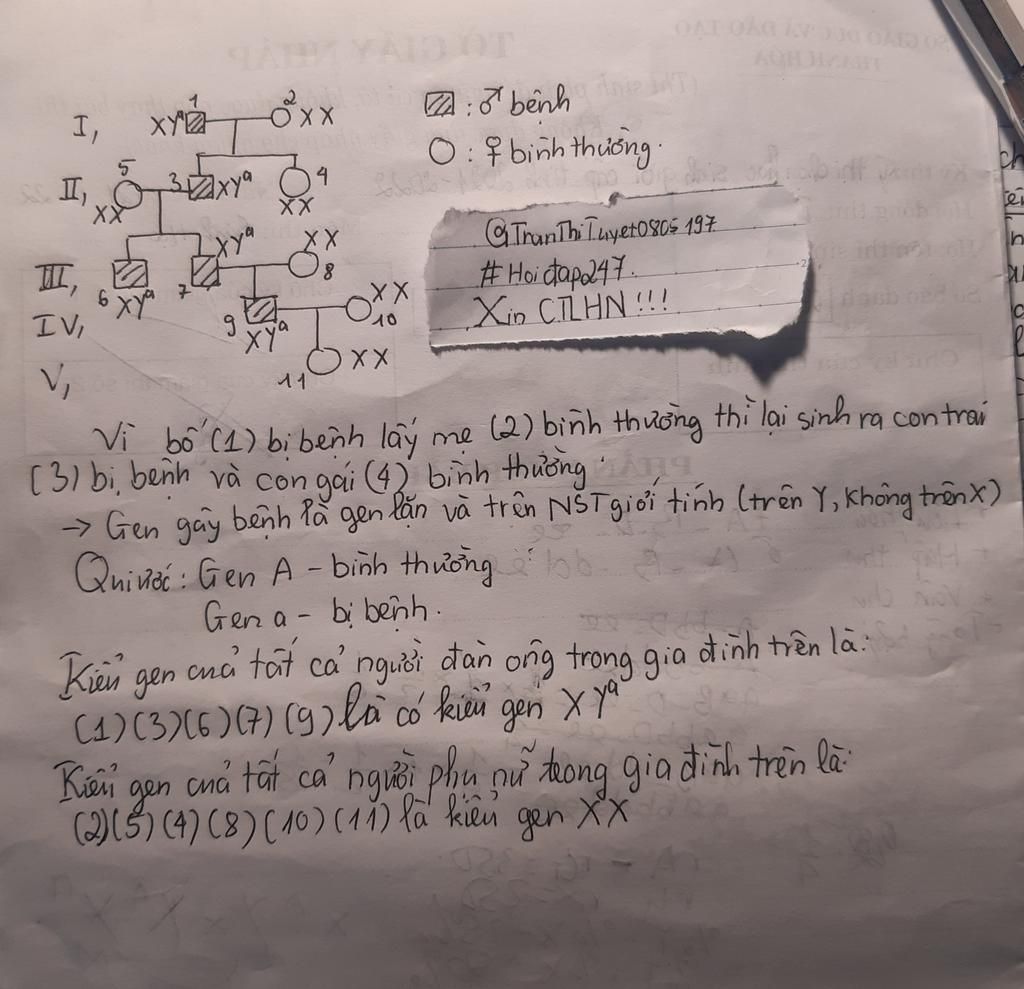 I,
1
XYᵃ
2
XX
▨ : ♂ bệnh
○ : ♀ bình thường.
II,
5
XX
3
XYᵃ
4
XX
III,
6
XYᵃ
7
XYᵃ
XX
8
IV,
9
XYᵃ
XX
10
V,
11
XX
@TranThiTuyet0805197
#Hoidap247.
Xin CTLHN!!!
Vì bố (1) bị bệnh lấy mẹ (2) bình thường thì lại sinh ra con trai
(3) bị bệnh và con gái (4) bình thường.
→ Gen gây bệnh là gen lặn và trên NST giới tính (trên Y, không trên X)
Qui ước: Gen A - bình thường
Gen a - bị bệnh.
Kiểu gen của tất cả người đàn ông trong gia đình trên là:
(1)(3)(6)(7)(9) là có kiểu gen XYᵃ
Kiểu gen của tất cả người phụ nữ trong gia đình trên là:
(2)(5)(4)(8)(10)(11) là kiểu gen XX